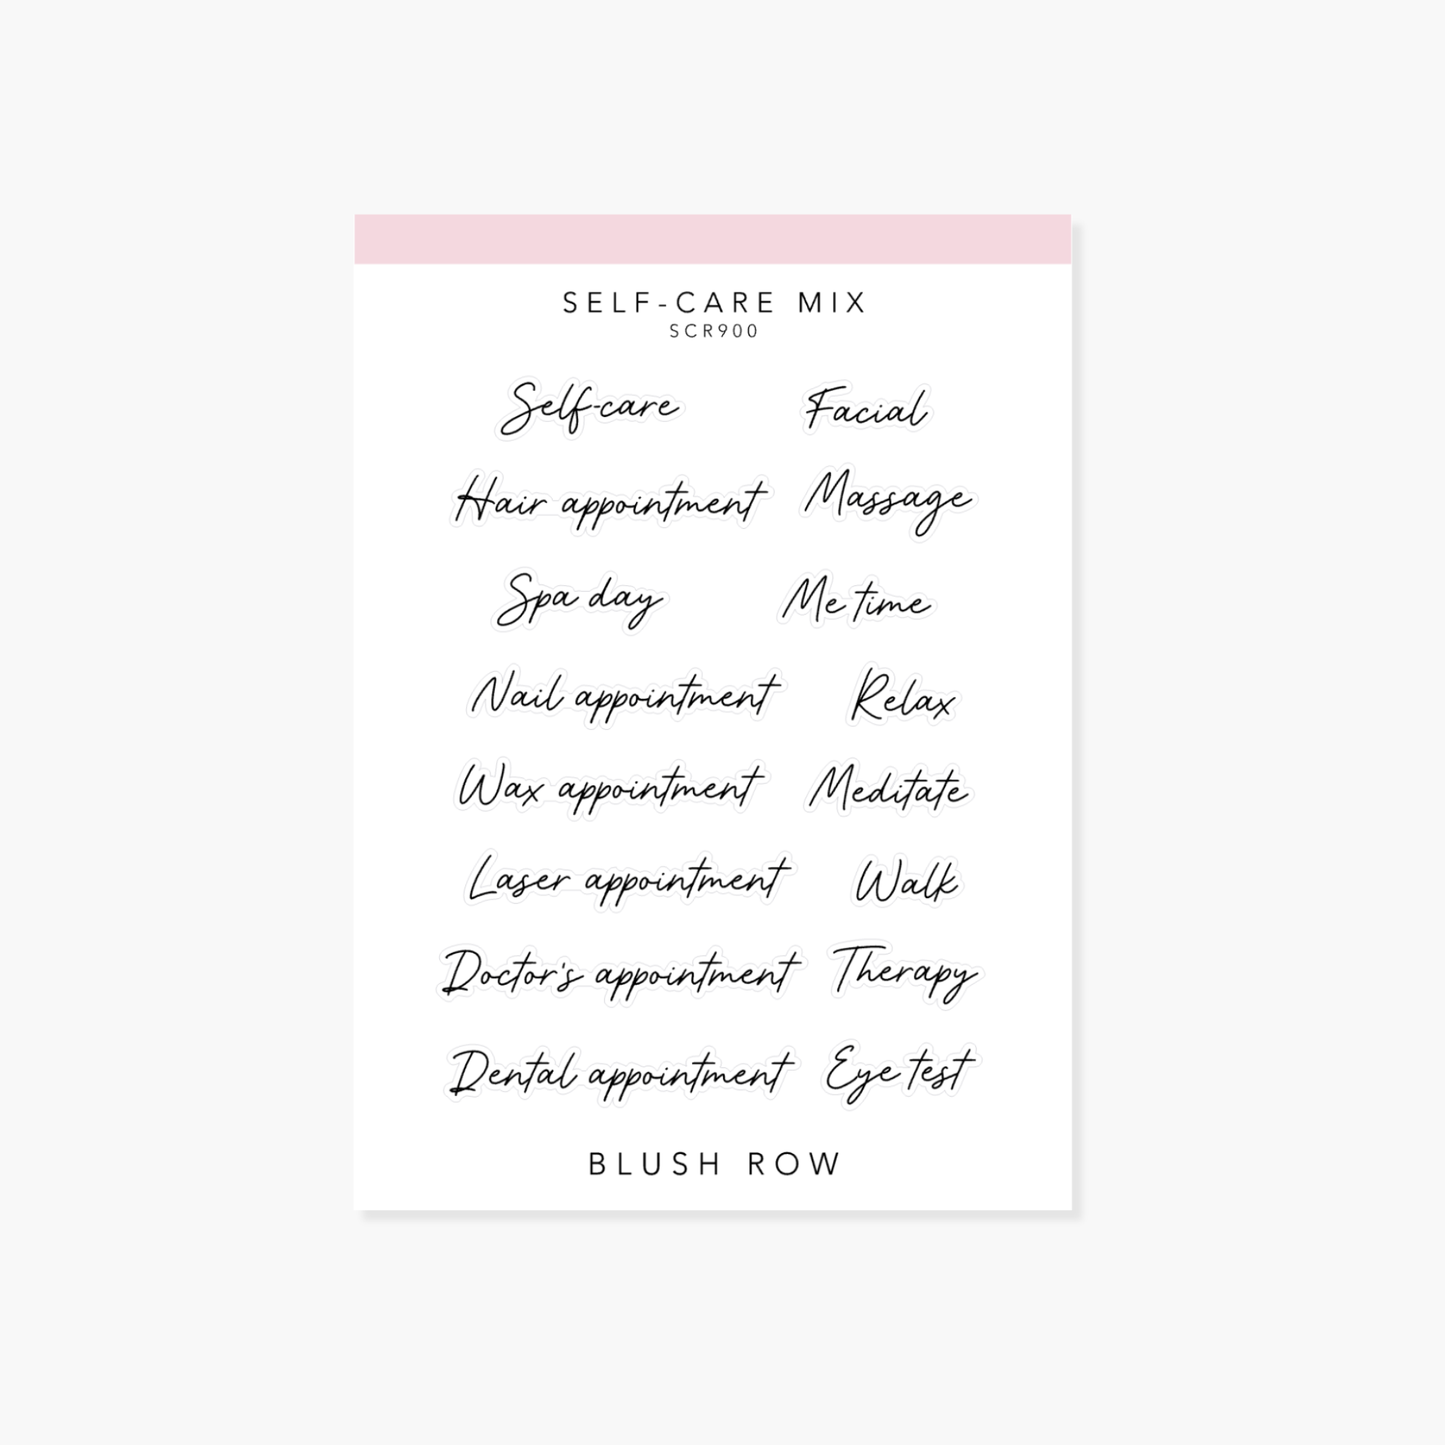 SELF-CARE MIX
SCR900
Self-care Facial
Hair appointment Massage
Spa day Me time
Nail appointment Relax
Wax appointment Meditate
Laser appointment Walk
Doctor's appointment Therapy
Dental appointment Eye test
BLUSH ROW